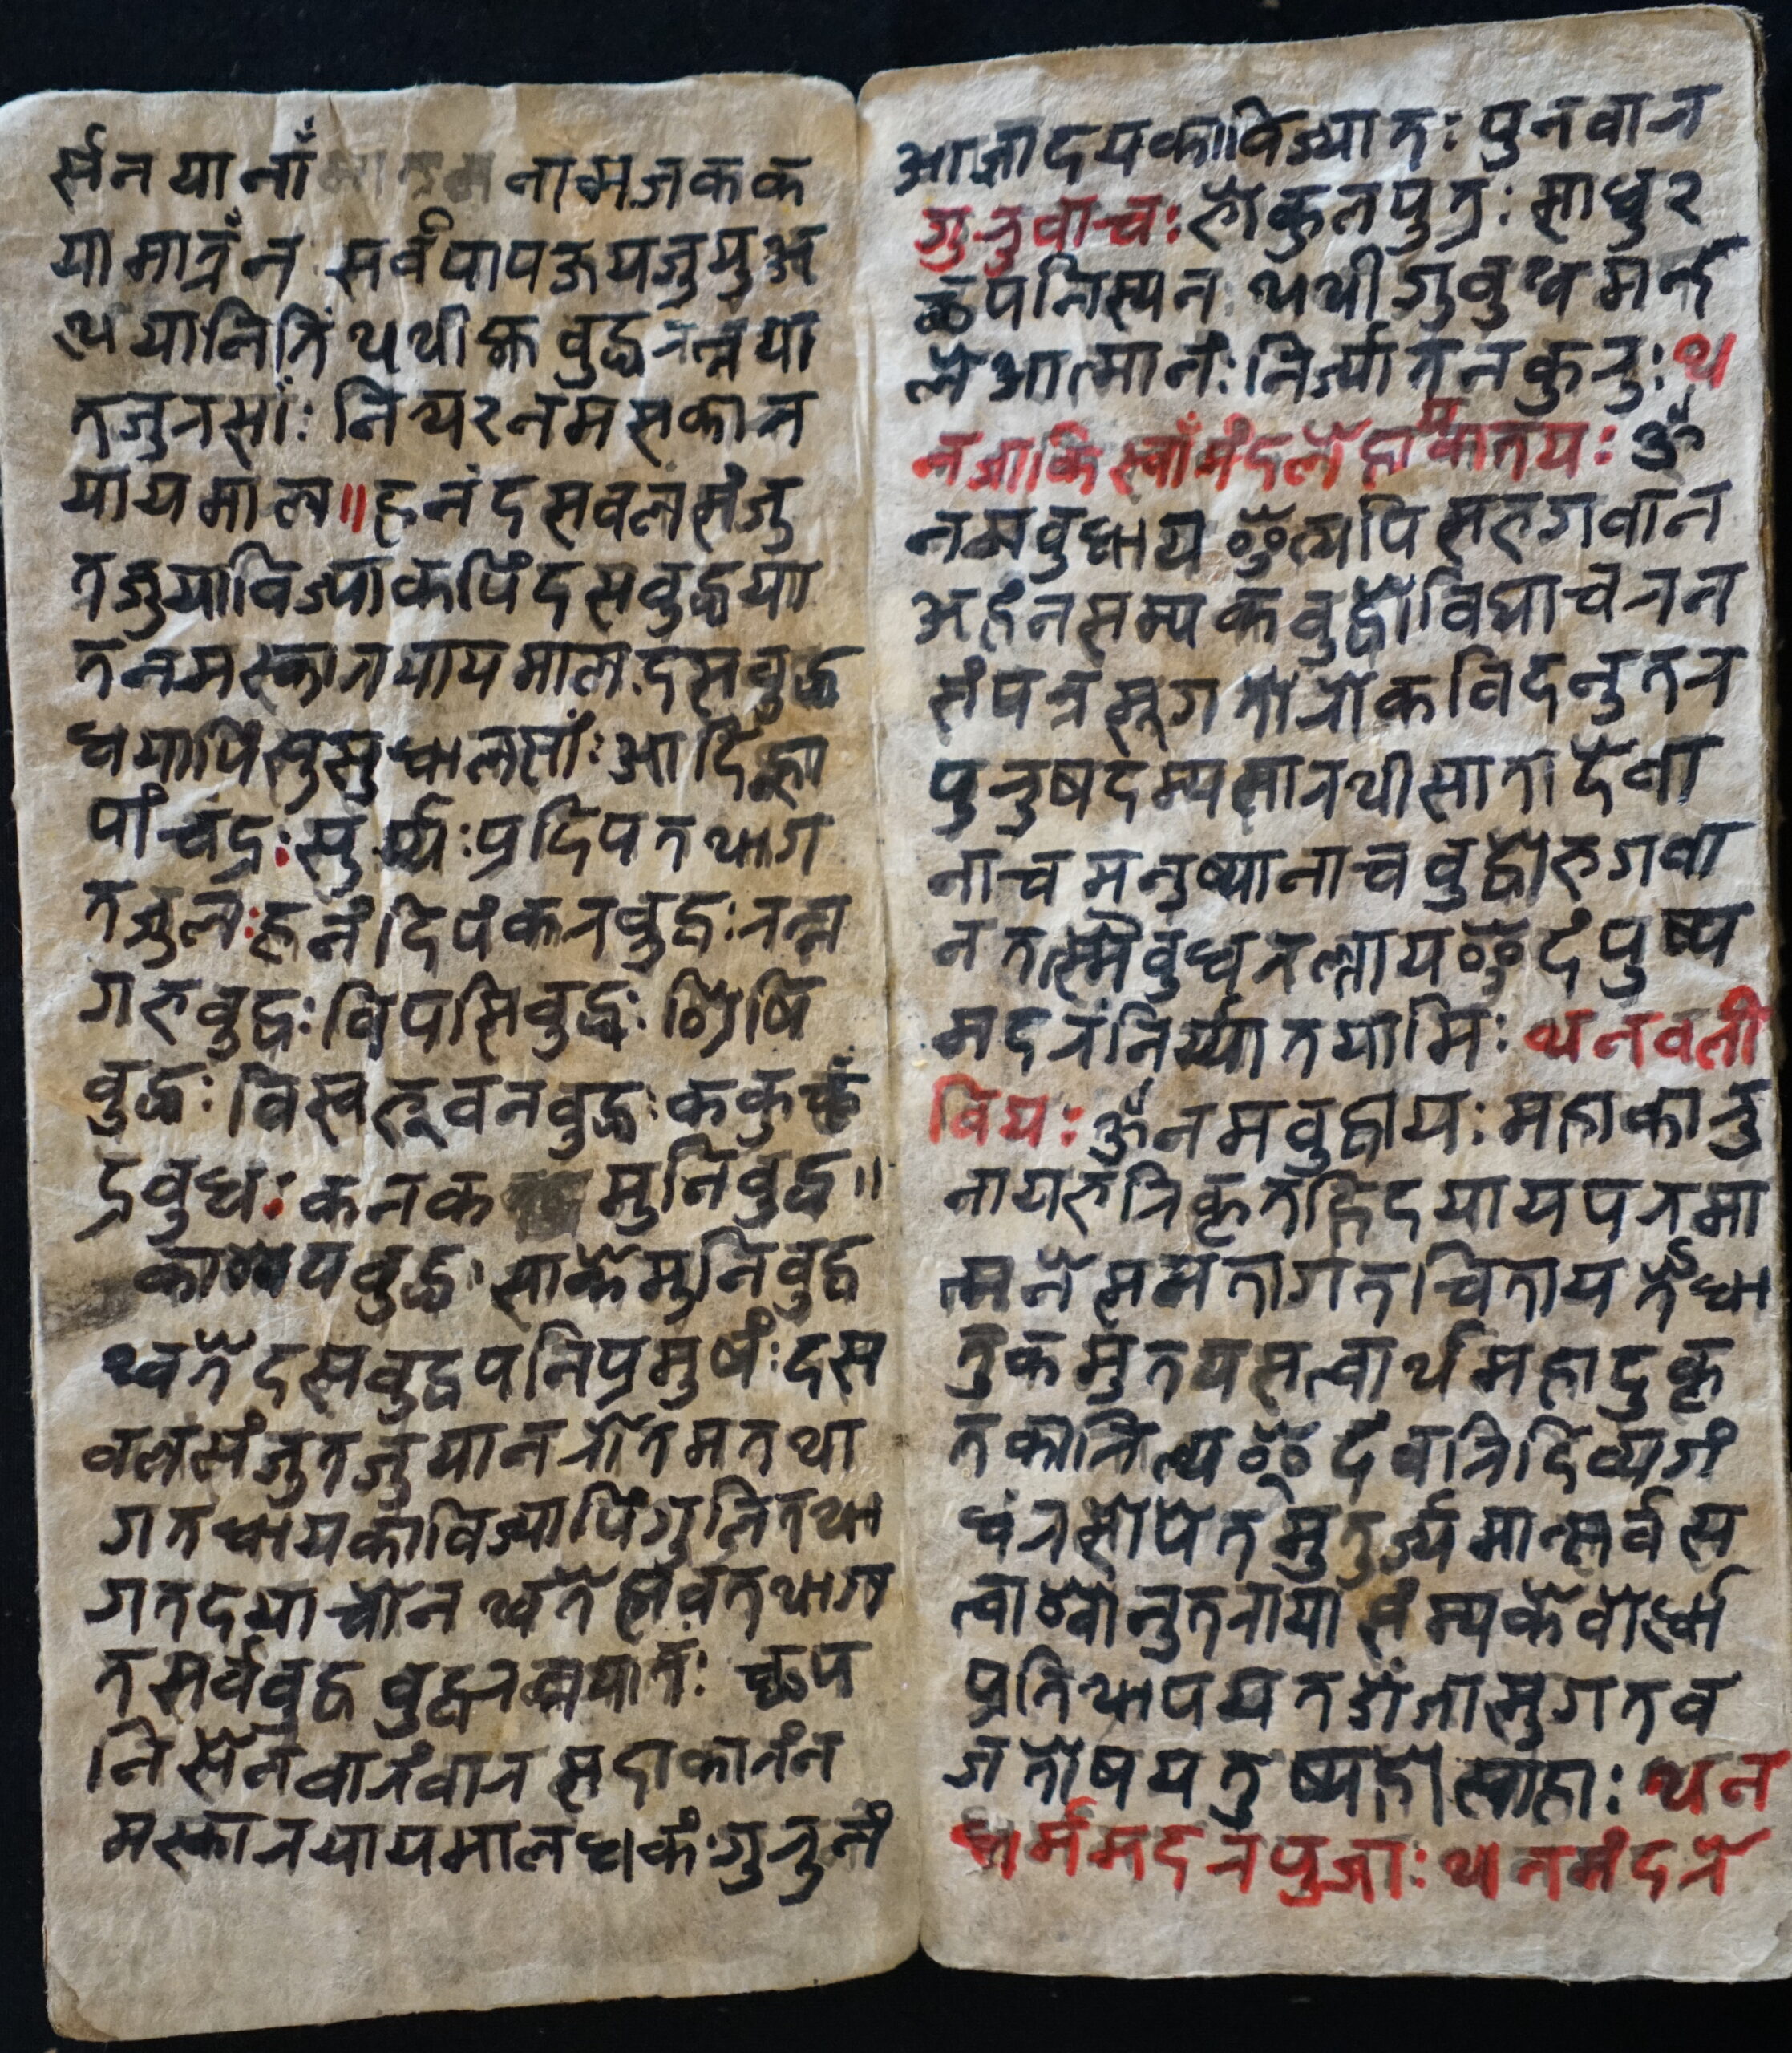 र्सनयानाँ नामजकक
यामात्रँन सर्वपापक्षयजुयुअ
थयानितिं थथीह्म वुद्धनत्नया
तजुनसां: निथ्य२नमसकान
यायमाल॥ह्ननं दसवलसंजु
तजुयाविज्याकपिं दसवुद्धया
तनमस्कानयायमाल.दसवुद्ध
धयापिंसुसुधालसां:आदिंह्ना
पांचंद्र:सुर्य्य:प्रदिपतथाग
तजुल:ह्ननं दिपंकनवुद्ध:नत्न
गरुवुद्ध:विपसिवुद्ध:शिषि
वुद्ध:विस्वरुवनवुद्ध:ककुछं
द्रवुध:कनक मुनिवुद्ध॥
काश्यपवुद्ध:साकेमुनिवुद्ध
थ्वतेँ दसवुद्धपनिप्रमुषं:दस
वलसंजुतजुयानर्नोतमतथा
गतधायकाविज्यापिंगुलितथा
गतदयाचोन थ्वतेसर्वतथाग
तसर्ववुद्ध वुद्धनत्नयात: छप
निसेनवानंवान सदाकानंन
मस्कानयायमालधकं:गुनुनं
आज्ञादयकाविज्यात:पुनवान
गुनुवाच:होकुलपुत्र:साधु२
छपनिस्यन थथीगुवुधमन्द
लेआत्मानं:निर्ज्यातनकुनु:थ
नजाकिस्वाँमंदलेँह्ना कातय:ॐ
नमवुधाय ॐत्यपिसरुगवान
अर्हनसम्यकवुद्धोविद्याचनन
संपन्नसूगतोनोकविदनुतन
पुनुषदम्यसानथीसातादेवा
नाचमनुष्यानाचवुद्धोरुगवा
नतस्मैवुधनत्नायॐदंपुष्प
मदनंनिर्य्यातयामि:थनवली
विय:ॐनमवुद्धाय:महाकानु
नायरुत्रिकृतह्रिदयायपनमा
त्मनेसमतागतचितायत्रैधा
तुकमुतयसत्वार्थमहादुकृ
तकानित्यॐदंवनिदिव्यगं
धंनसोपेतमुतुर्ज्यमान्सर्वस
त्वाश्चोनुतनायासंम्यकेवोर्धो
प्रतिथापयतओँआसुगतव
जतोषयतुष्यहोस्वाहा:थन
धर्ममदनपुजा:थनमंदने